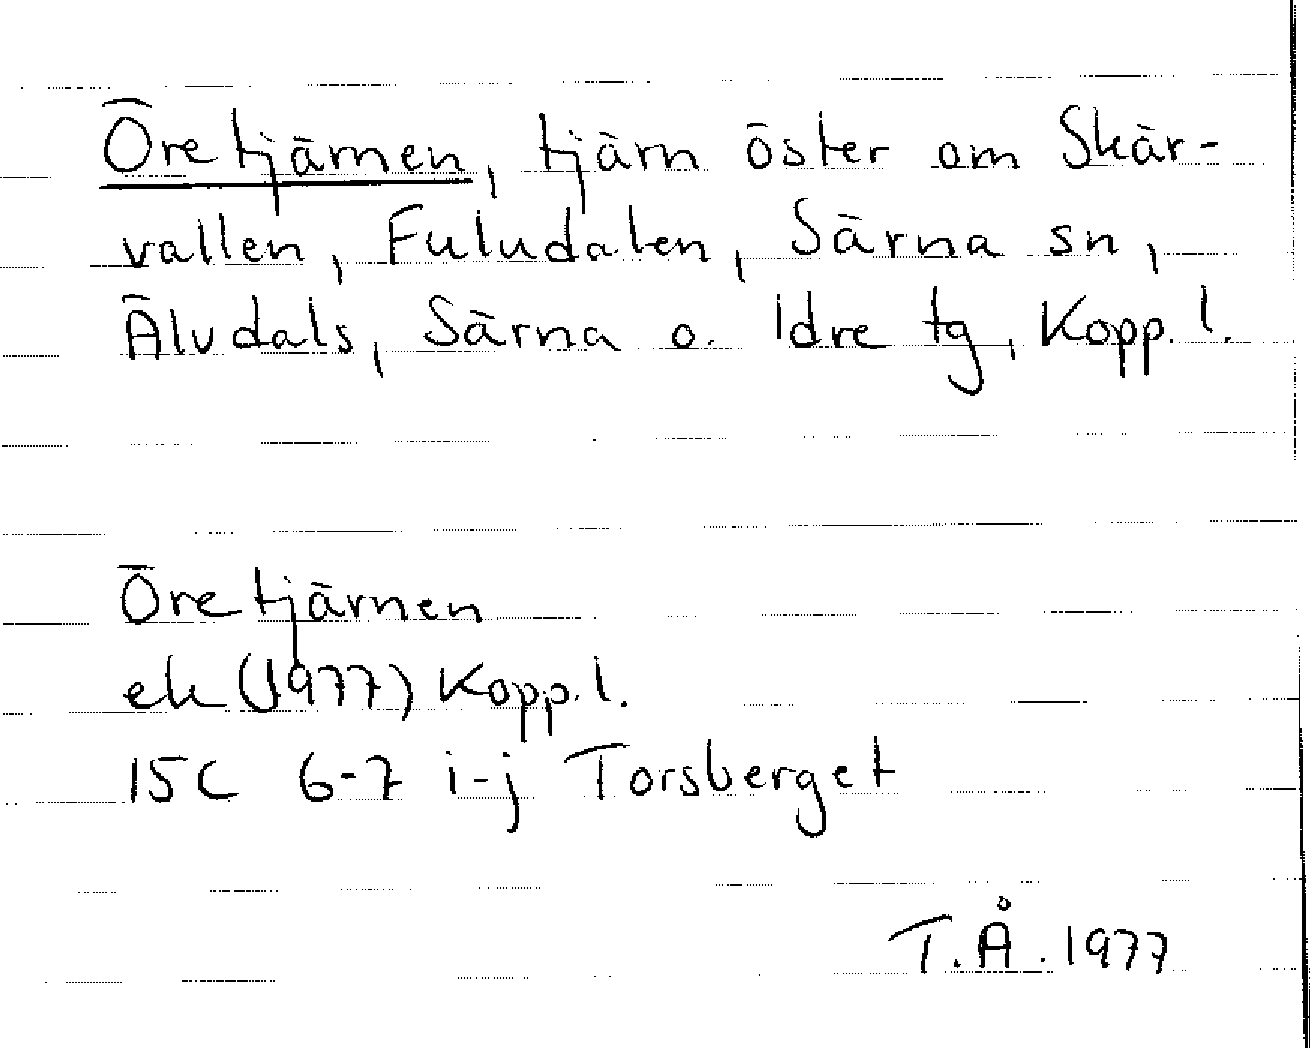 Öretjärnen, tjärn öster om Skär-
vallen, Fuludalen, Särna sn,
Älvdals, Särna o. Idre tg, Kopp. l.
Öretjärnen
ek (1977) Kopp. l.
15C 6-7 i-j Torsberget
T.Å. 1977